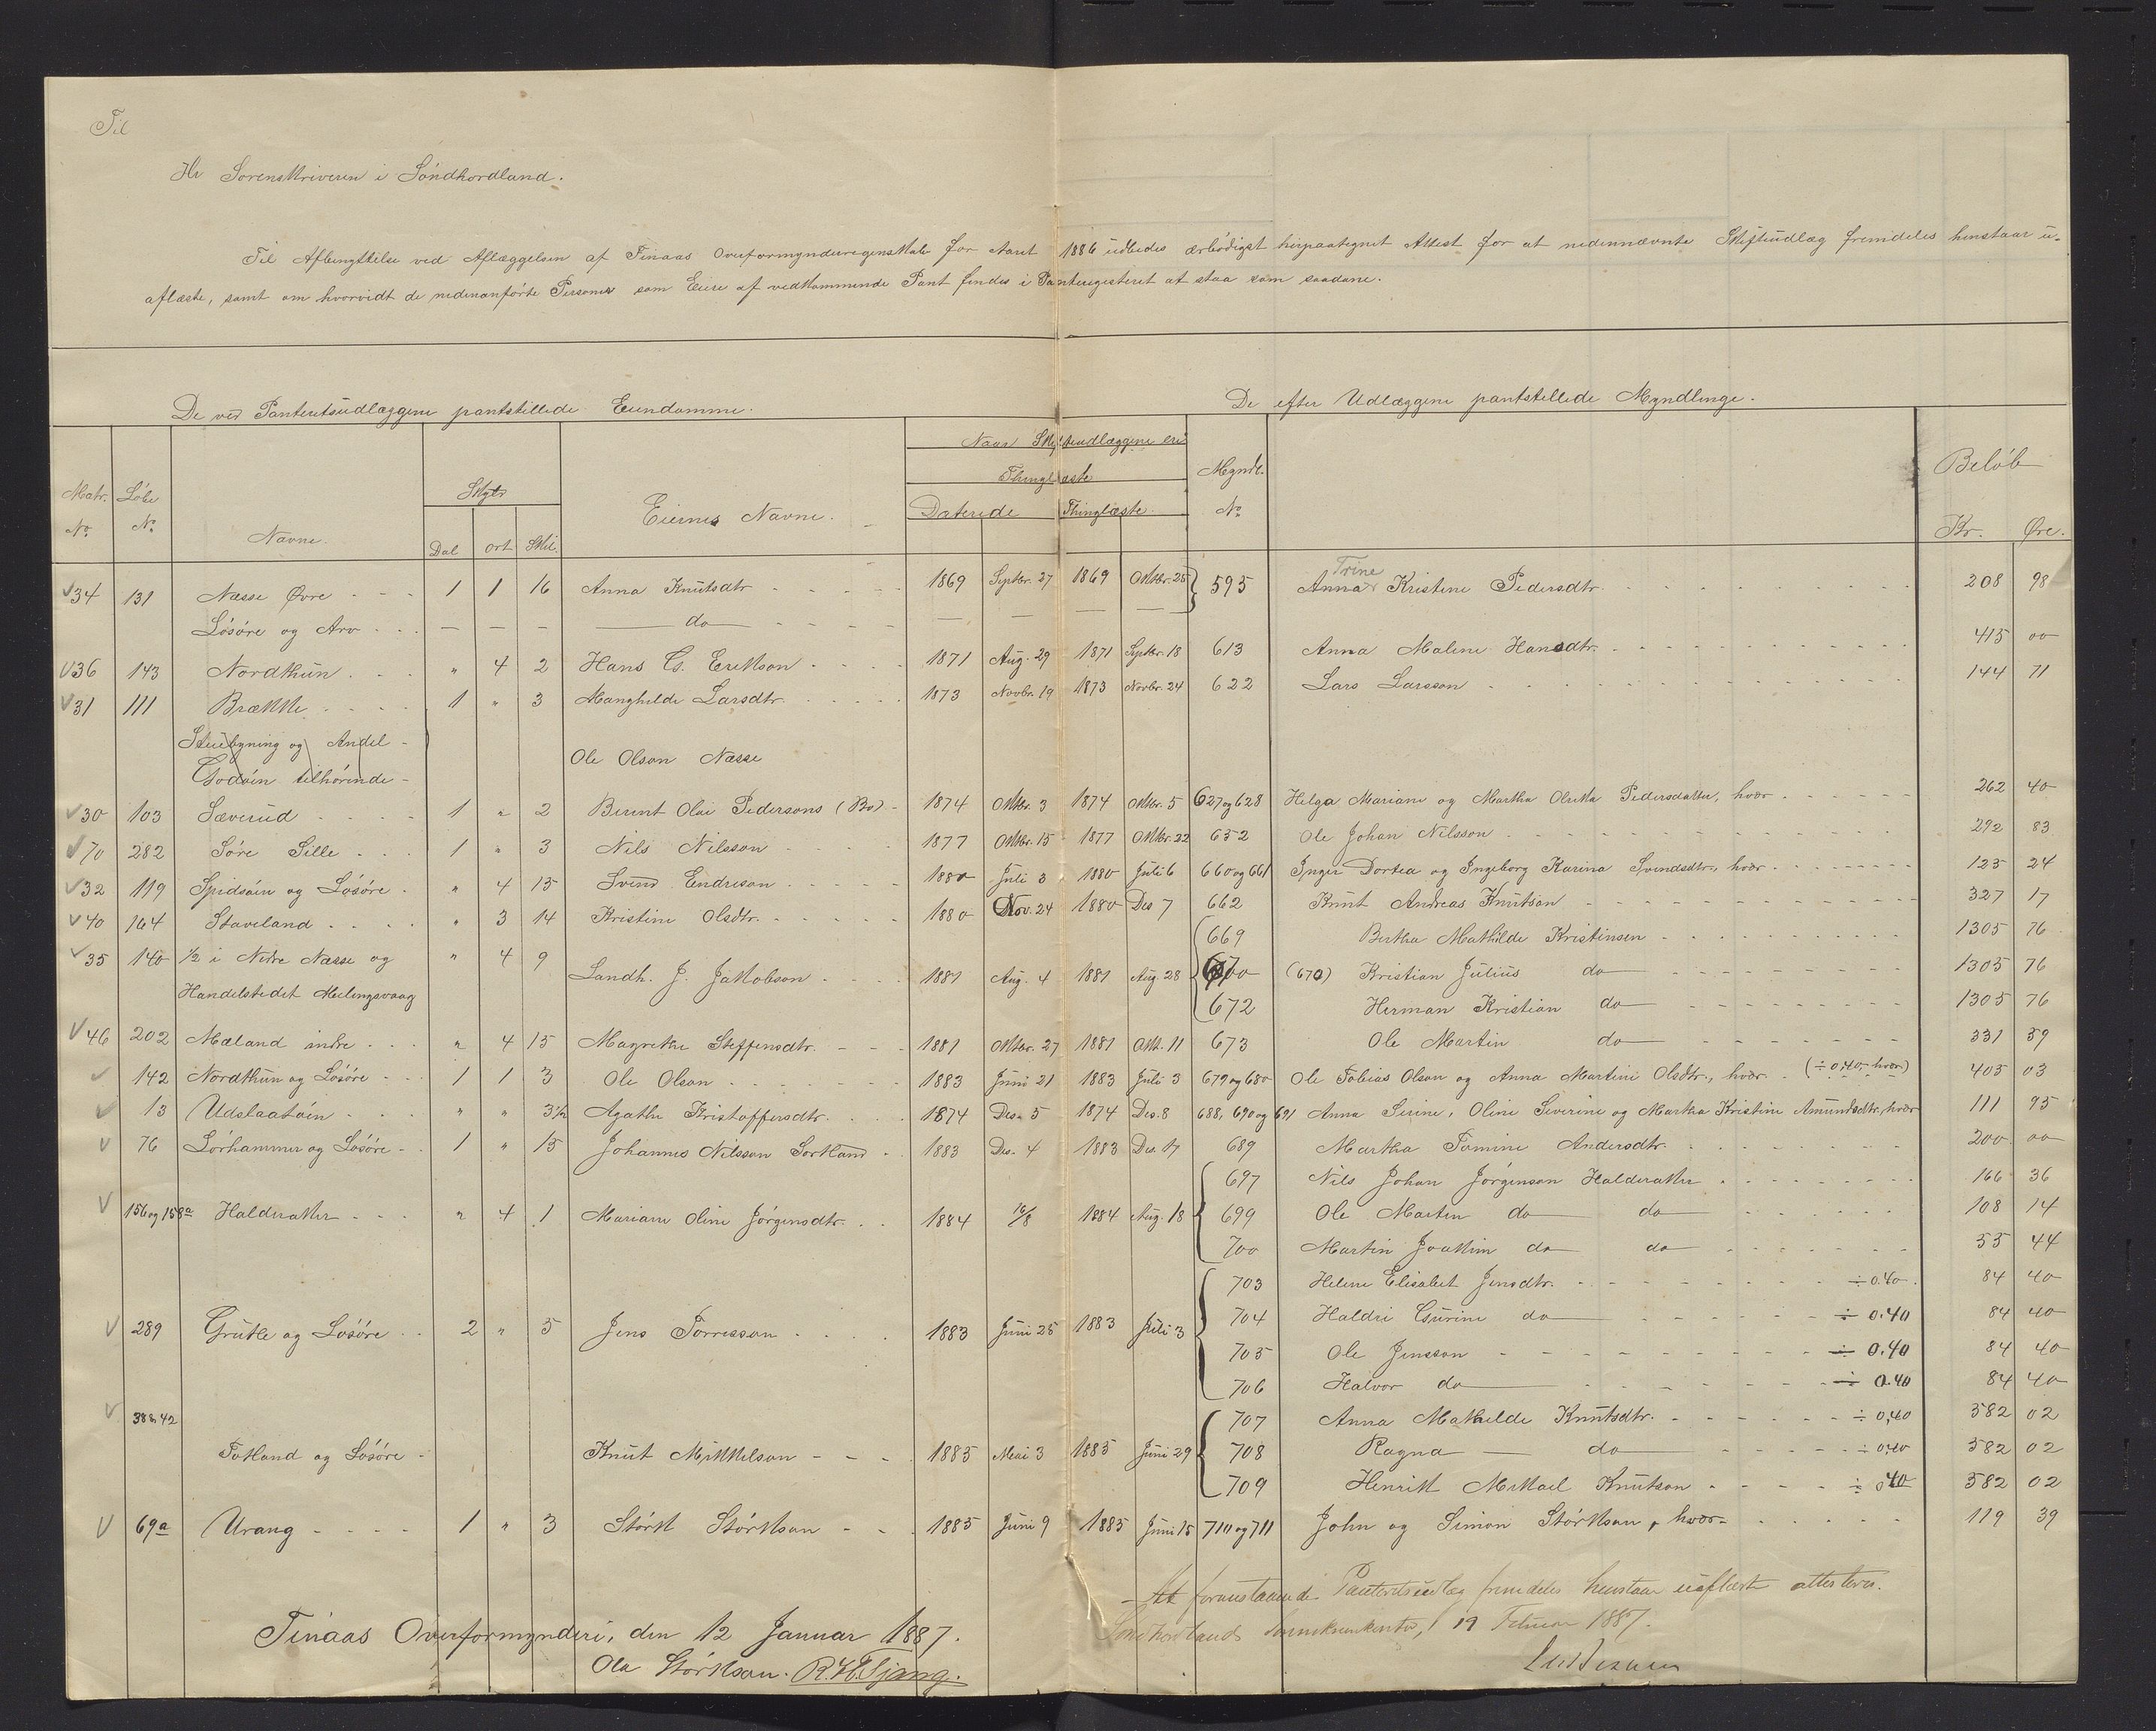 Til
Hr Sorenskriveren i Söndhordland.
Til Afbenyttelse ved Aflæggelsen af Finaas Overformynderregnskab for Aaret 1886 udbedes ærbödigst herpaategnet Attest for at nedennævnte Skifteudlæg fremdeles henstaar u-
aflæste, samt om hvorvidt de nedenanförte Personer som Eiere af vedkommende Pant findes i Panteregisteret at staa som saadane.
De ved Panteretsudlæggene pantstillede Eiendomme. De efter Udlæggene pantstillede Myndlinge.
Matr. No. Löbe No. Navne. Skyld Dal Ort Skil. Eiernes Navne. Naar Skifteudlæggene ere Thinglæste Daterede Thinglæste Myndl. No. Belöb Kr. Öre.
34 131 Næsse Övre 1 1 16 Anna Knutsdtr 1869 Septbr. 27 1869 Oktbr. 25 595 Anna Trine Kristine Pedersdtr. 208 98
Lösöre og Arv — — — do — — —
36 143 Nordthun " 4 2 Hans G. Erikson 1871 Aug. 29 1871 Septbr. 18 613 Anna Malene Hansdtr. 415 00
31 111 Brække 1 " 3 Manghilde Larsdtr. 1873 Novbr. 19 1873 Novbr. 24 622 Lars Larsson 144 71
Stuebygning og Andel
Godöen tilhörende Ole Olson Næsse
30 103 Sæverud 1 " 2 Bernt Olai Pedersons (Bo) 1874 Oktbr. 3 1874 Oktbr. 5 627 og 628 Helga Mariane og Martha Olrika Pedersdatter, hver 262 40
70 282 Söre Sille 1 " 3 Nils Nilsson 1877 Oktbr. 15 1877 Oktbr. 22 652 Ole Johan Nilsson 292 83
32 119 Spidsöen og Lösöre " 4 15 Svend Endreson 1880 Juli 3 1880 Juli 6 660 og 661 Inger Dortea og Ingeborg Karina Svendsdtr., hver 125 24
40 164 Staveland " 3 14 Kristine Olsdtr. 1880 Nov. 24 1880 Des 7 662 Knut Andreas Knutson 327 17
669 Bertha Mathilde Kristinsen 1305 76
35 140 1/2 i Nedre Næsse og " 4 9 Landh. J. Jakobson 1881 Aug. 4 1881 Aug 28 (670) Kristian Julius do 1305 76
Handelstedet Melingsvaag 672 Herman Kristian do 1305 76
46 202 Mæland indre " 4 15 Magrethe Steffensdtr. 1881 Oktbr. 27 1881 Okt. 11 673 Ole Martin do 331 59
142 Nordthun og Lösöre 1 1 3 Ole Olson 1883 Juni 21 1883 Juli 3 679 og 680 Ole Tobias Olson og Anna Martine Olsdtr., hver (÷ 0,40, hver) 405 03
13 Udslaatöen " " 3½ Agathe Kristoffersdtr. 1874 Des. 5 1874 Des. 8 688, 690 og 691 Anna Serine, Oline Severine og Martha Kristine Amundsdtr, hver 111 95
76 Lörhammer og Lösöre 1 " 15 Johannes Nilsson Sortland 1883 Des. 4 1883 Des. 17 689 Martha Tomine Andersdtr. 200 00
697 Nils Johan Jörgenson Halderaker 166 36
156 og 158a Halderaker " 4 1 Mariane Oline Jörgensdtr. 1884 16/8 1884 Aug. 18 699 Ole Martin do do 108 14
700 Martin Joakim do do 55 44
703 Helene Elisabet Jensdtr. ÷ 0.40 84 40
704 Haldri Gurine do ÷ 0.40 84 40
289 Grutle og Lösöre 2 " 5 Jens Torresson 1883 Juni 25 1883 Juli 3
705 Ole Jensson ÷ 0.40 84 40
706 Halvor do ÷ 0.40 84 40
38 & 42 707 Anna Mathilde Knutsdtr. ÷ 0,40 582 02
Totland og Lösöre Knut Mikkelson 1885 Mai 3 1885 Juni 29 708 Ragna do ÷ 0,40 582 02
709 Henrik Mikael Knutson ÷ 0,40 582 02
69a Urang 1 " 3 Störk Störkson 1885 Juni 9 1885 Juni 15 710 og 711 John og Simon Störkson, hver 119 39
At foranstaaende Panteretsudlæg fremdeles henstaar uaflæst attesteres.
Söndhordlands Sorenskriverkontor, 19 Februar 1887.
Finaas Overformynderi, den 12 Januar 1887.
Ola Störkson. R. H. Tjong.